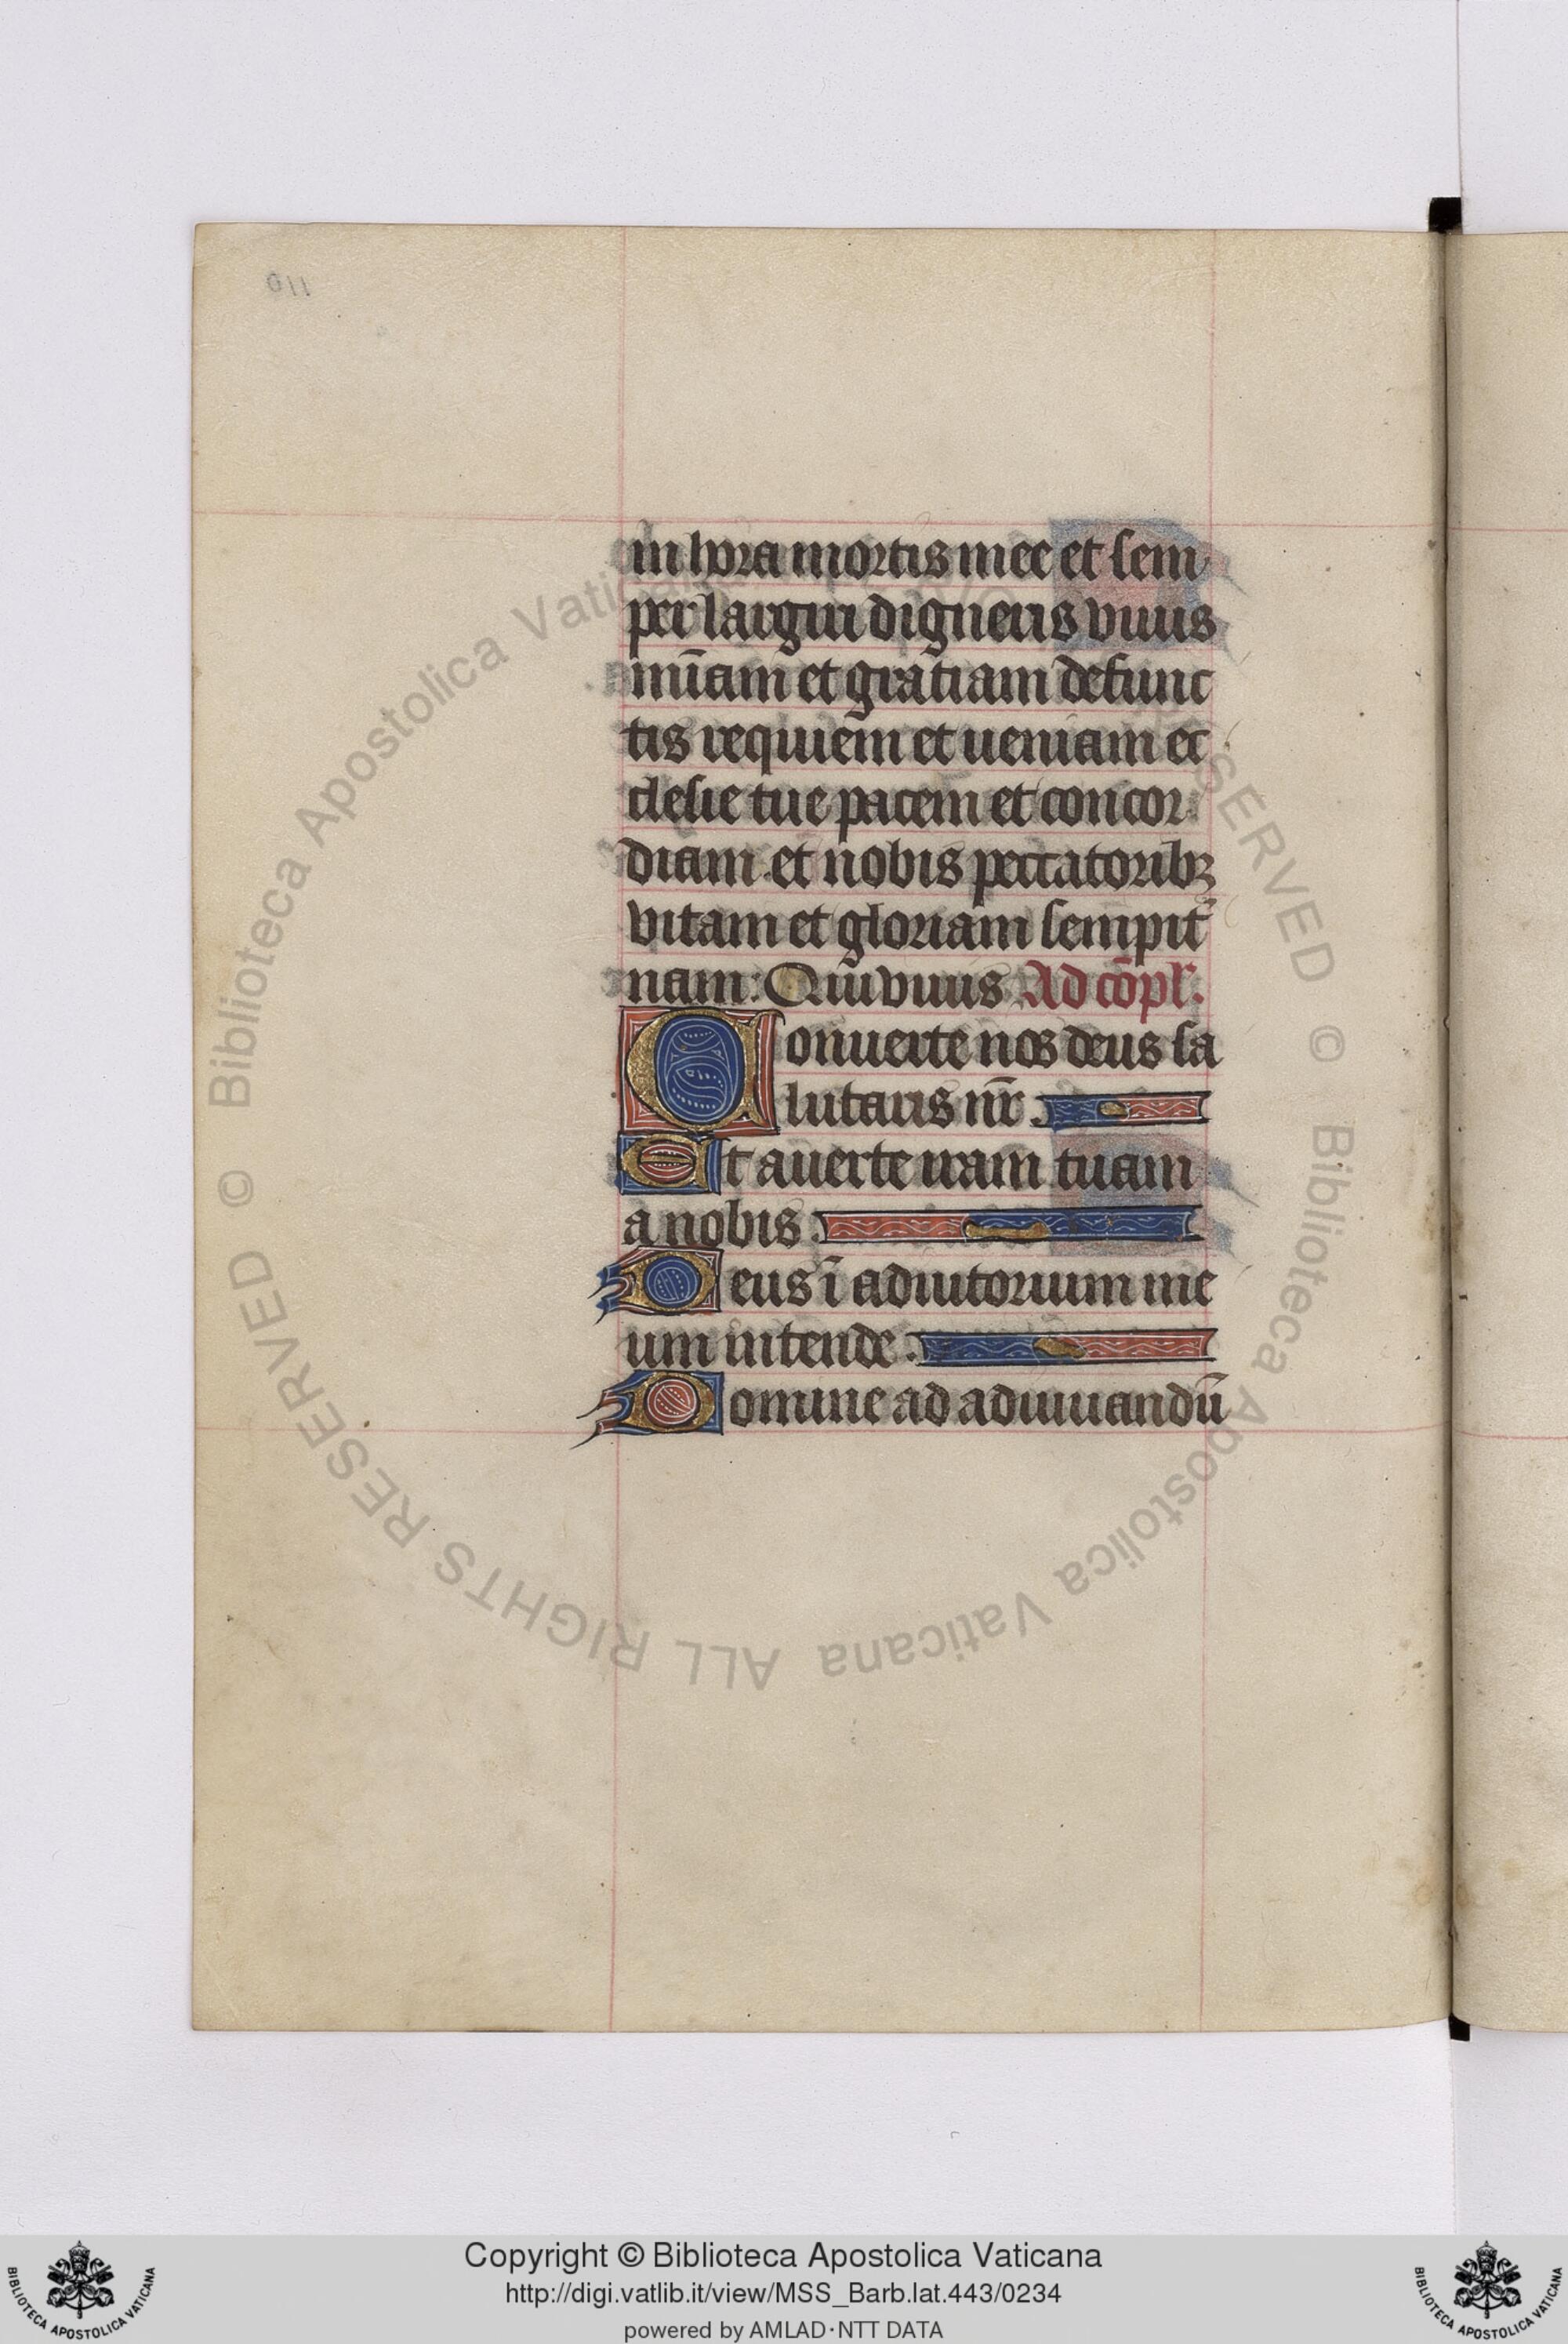 in hora mortis mee et sem
per largiri digneris viuis
mīam et gratiam defunc
tis requiem et ueniam ec
clesie tue pacem et concor
diam. et nobis peccatoribꝫ
vitam et gloriam sempit̄
nam: Qui viuis Ad cōpl'.
Conuerte nos deus sa
lutaris nr̄.
Et auerte iram tuam
a nobis.
Deus ī adiutorium me
um intende.
Domine ad adiuuandū
110
© Biblioteca Apostolica Vaticana ALL RIGHTS RESERVED
© Biblioteca Apostolica Vaticana ALL RIGHTS RESERVED
Copyright © Biblioteca Apostolica Vaticana
http://digi.vatlib.it/view/MSS_Barb.lat.443/0234
powered by AMLAD·NTT DATA
BIBLIOTECA APOSTOLICA VATICANA
BIBLIOTECA APOSTOLICA VATICANA